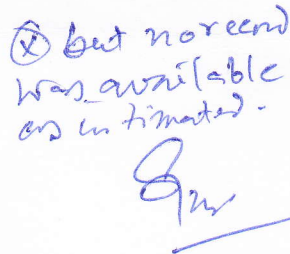 Ⓧ but no record
was available
as intimated.